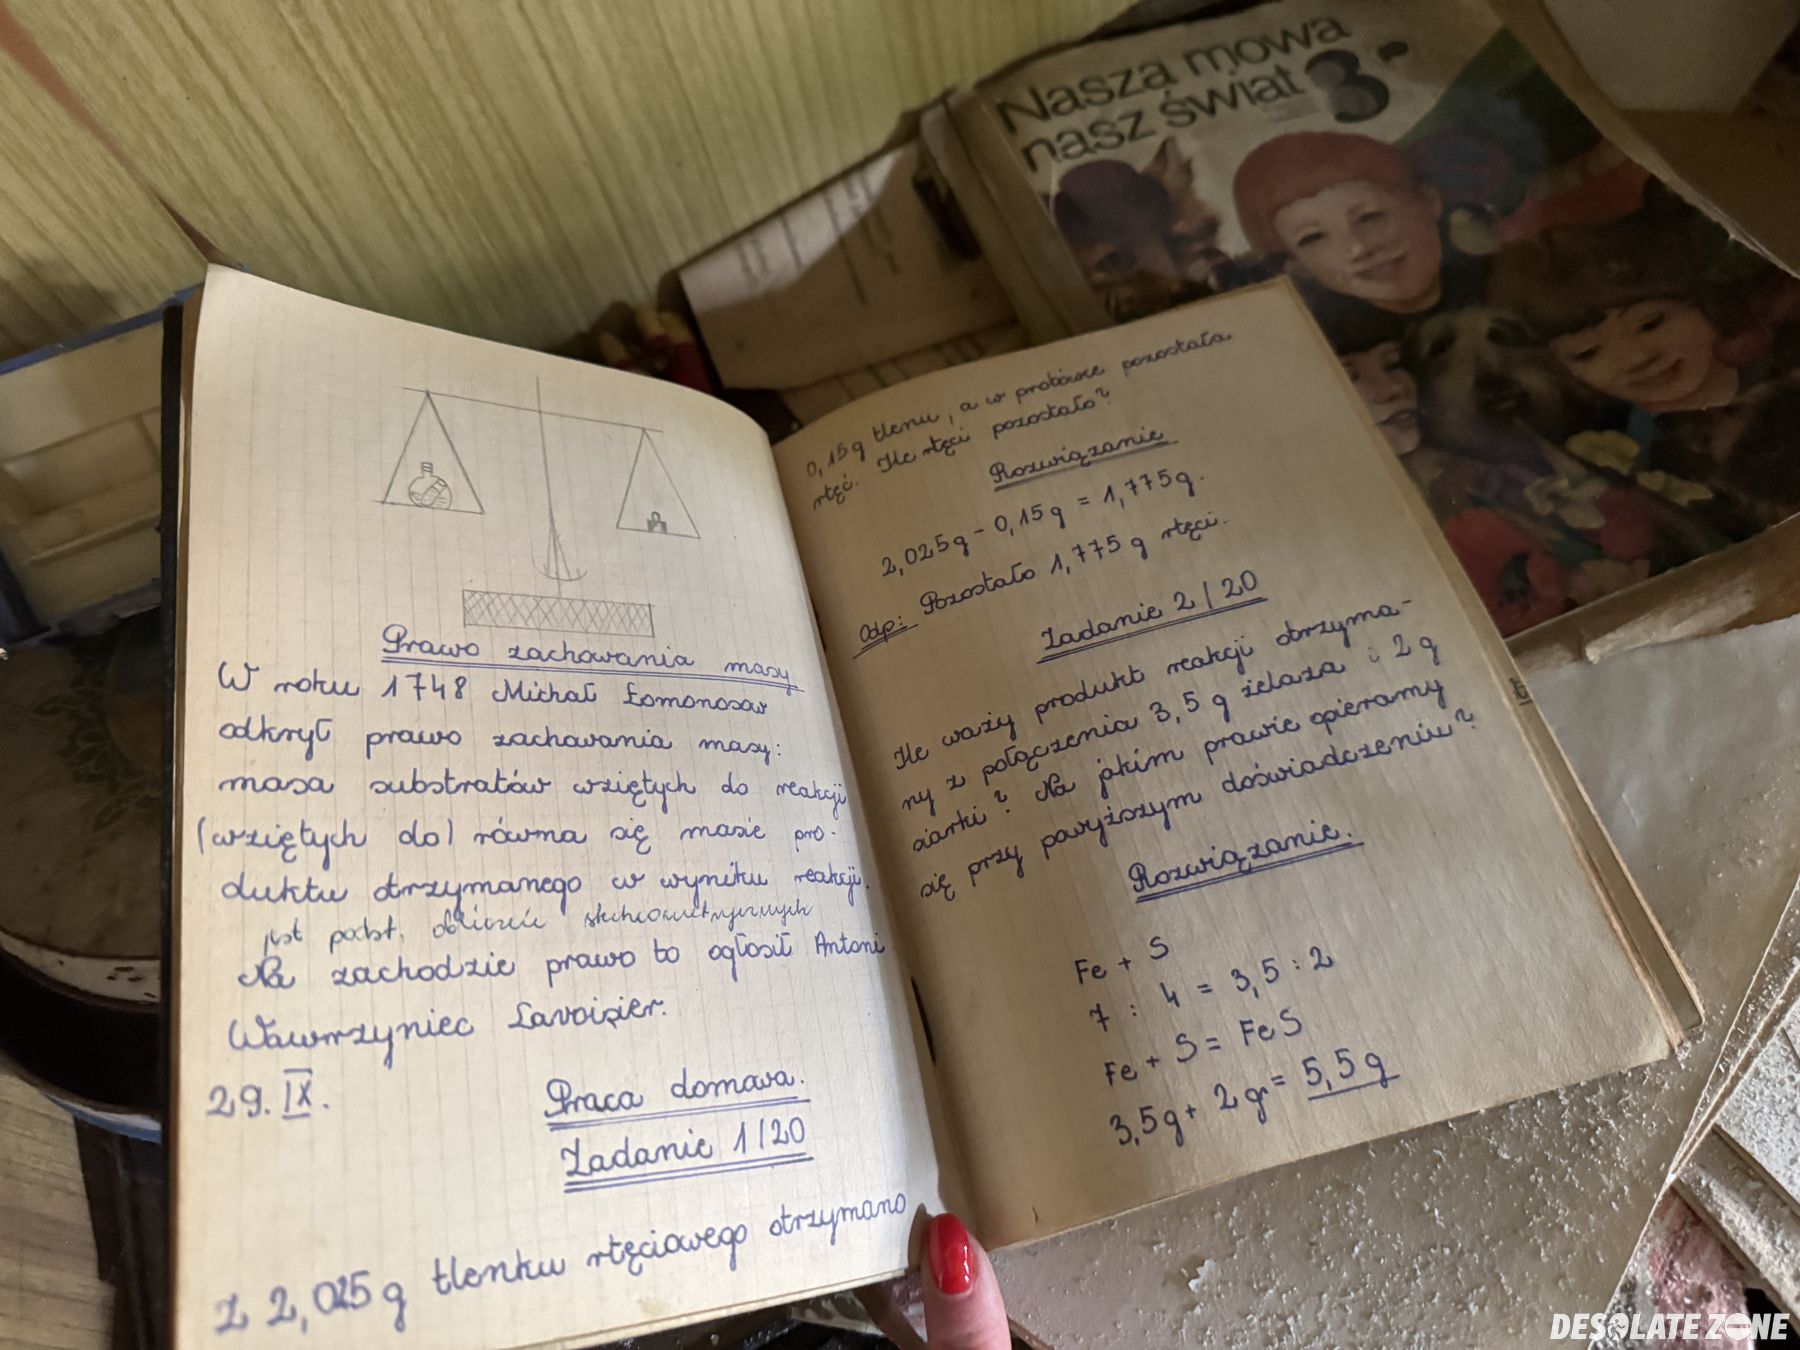 Nasza mowa
nasz świat 3
Prawo zachowania masy
W roku 1748 Michał Łomonosow
odkrył prawo zachowania masy:
masa substratów wziętych do reakcji
(wziętych do) równa się masie pro-
duktu otrzymanego w wyniku reakcji.
jest podst. obliczeń stechiometrycznych
Na zachodzie prawo to ogłosił Antoni
Wawrzyniec Lavoisier.
29. IX.
Praca domowa.
Zadanie 1/20
Z 2,025g tlenku rtęciowego otrzymano
0,15g tlenu, a w probówce pozostała
rtęć. Ile rtęci pozostało?
Rozwiązanie
2,025g - 0,15g = 1,775g.
Odp: Pozostało 1,775g rtęci.
Zadanie 2/20
Ile waży produkt reakcji otrzyma-
ny z połączenia 3,5 g żelaza i 2 g
siarki? Na jakim prawie opieramy
się przy powyższym doświadczeniu?
Rozwiązanie.
Fe + S
7 : 4 = 3,5 : 2
Fe + S = FeS
3,5g + 2g = 5,5g
DESOLATE ZONE